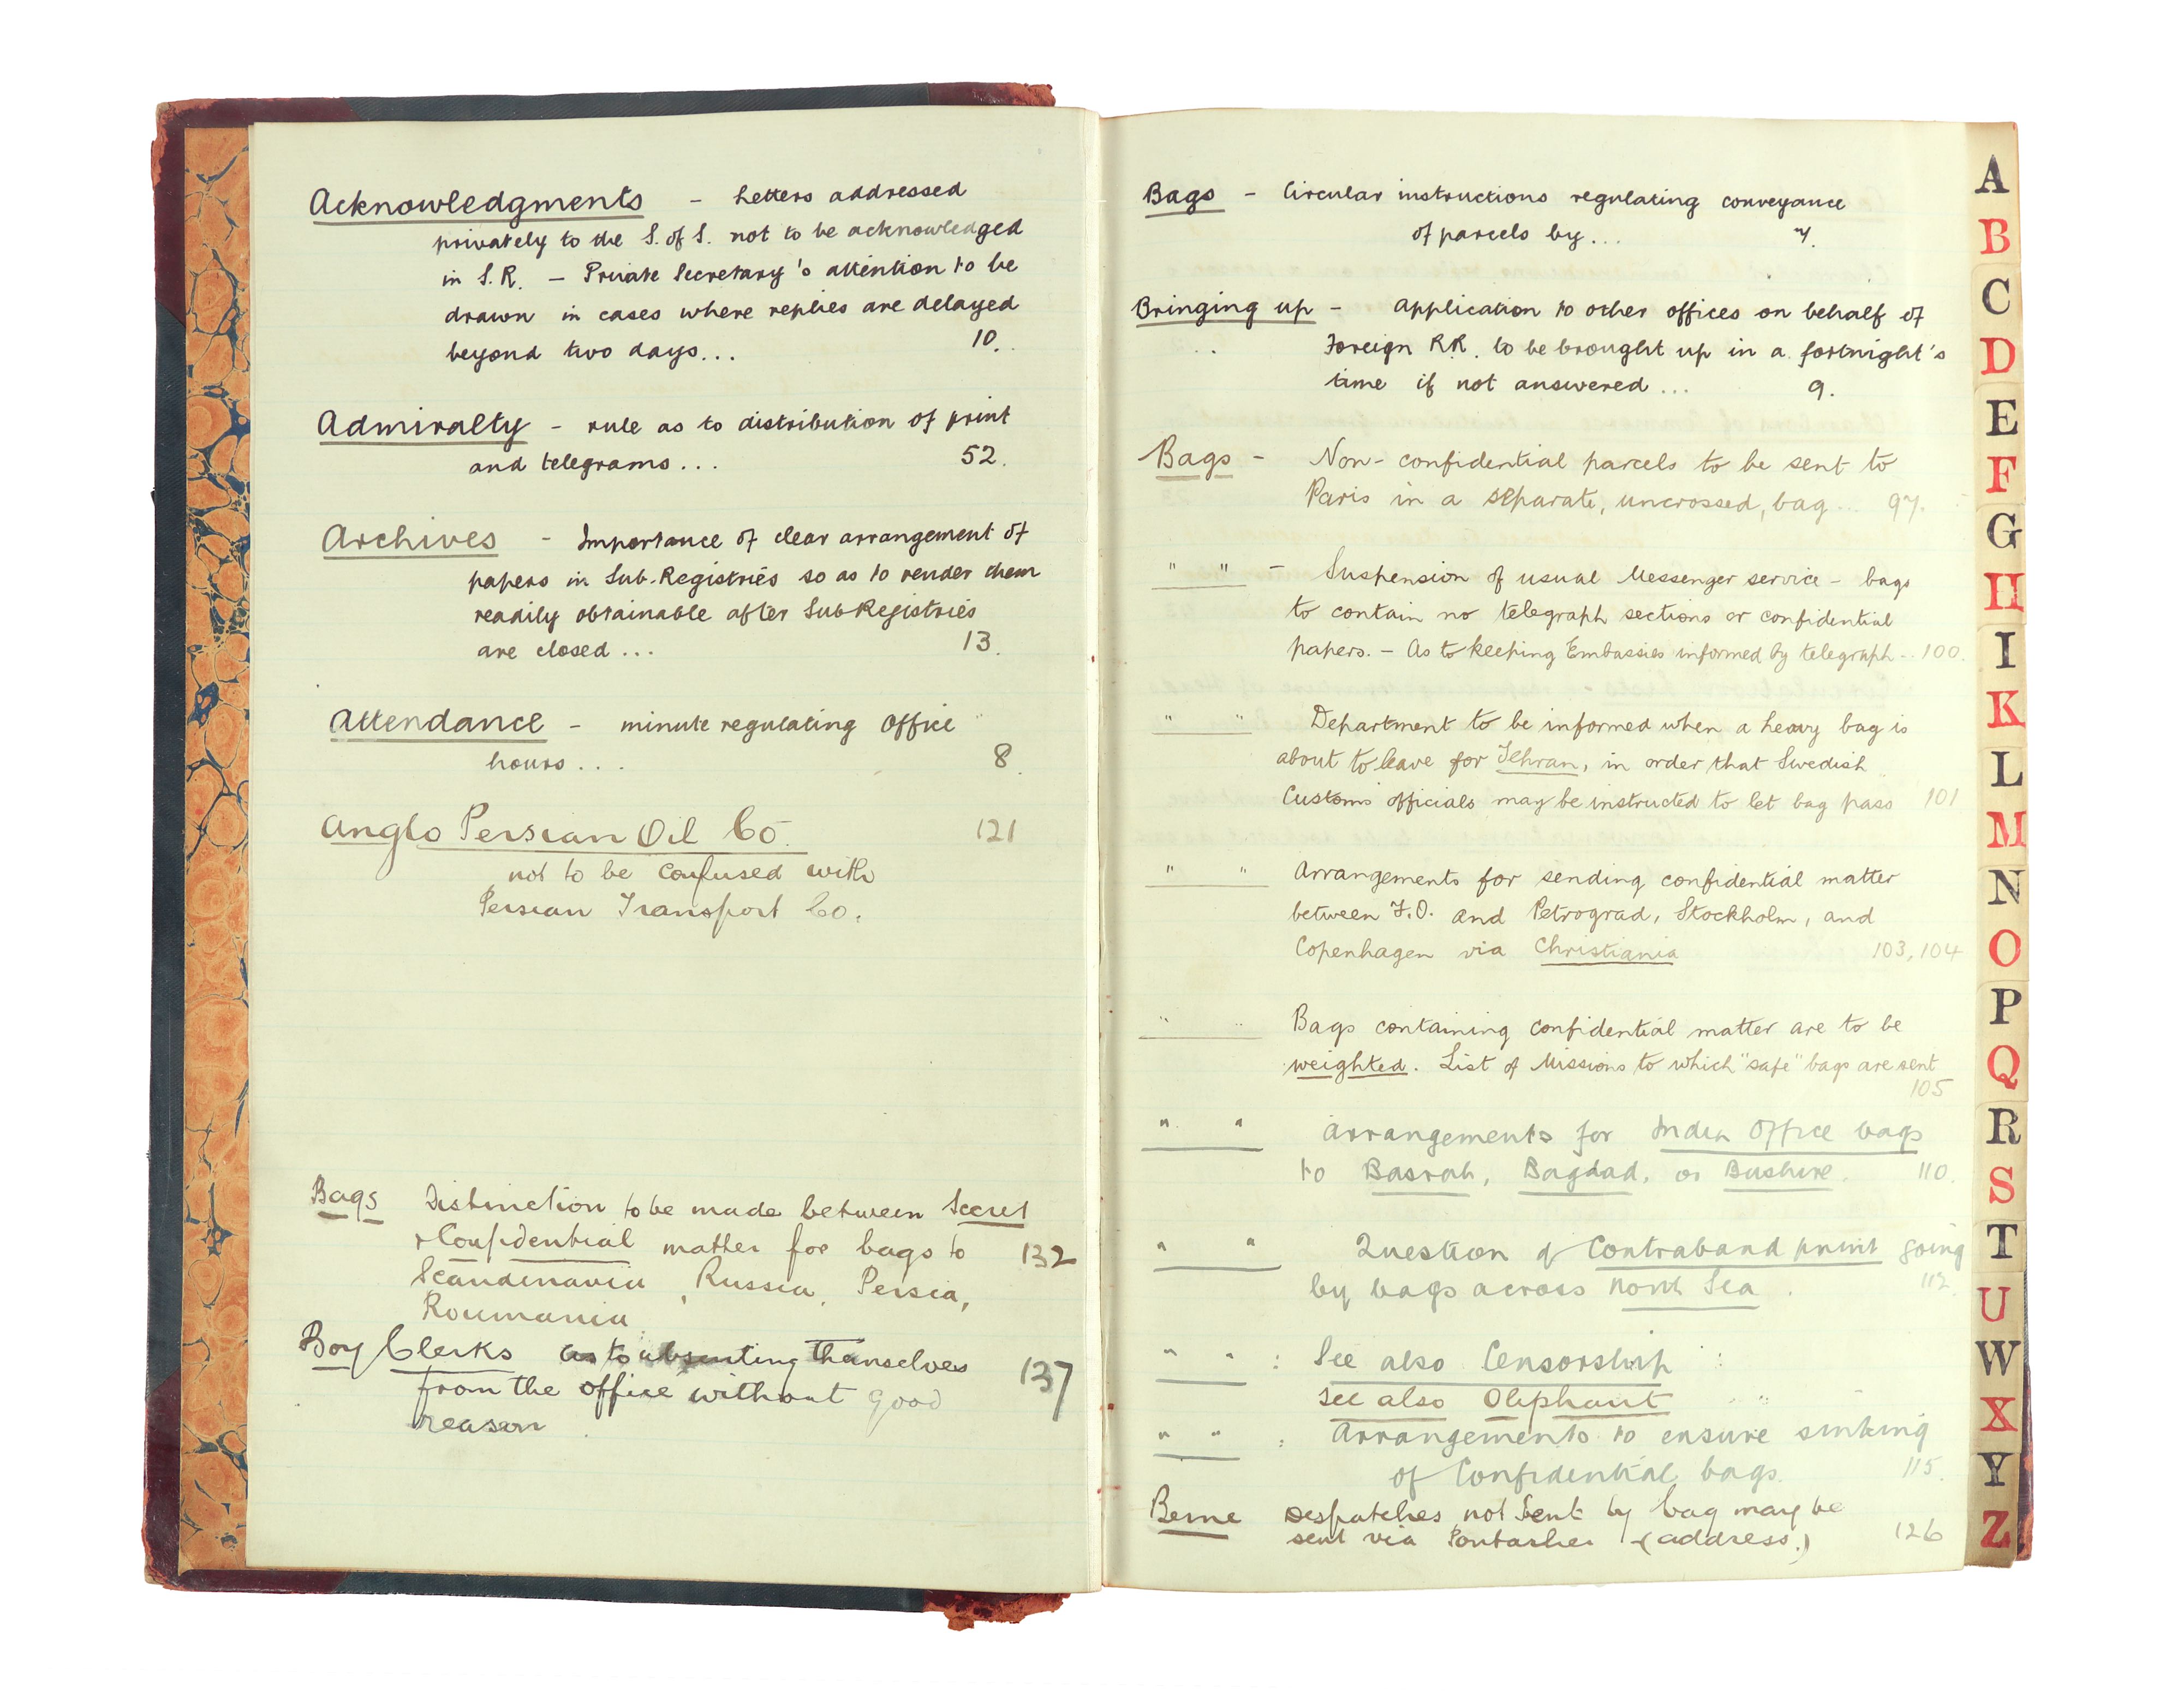 Acknowledgments - Letters addressed
privately to the S. of S. not to be acknowledged
in S.R. - Private Secretary's attention to be
drawn in cases where replies are delayed
beyond two days... 10.
Admiralty - rule as to distribution of print
and telegrams... 52.
Archives - Importance of clear arrangement of
papers in Sub-Registries so as to render them
readily obtainable after Sub Registries
are closed... 13.
Attendance - minute regulating office
hours... 8.
Anglo Persian Oil Co. 121
not to be confused with
Persian Transport Co.
Bags Distinction to be made between Secret
+ Confidential matter for bags to 132
Scandinavia, Russia, Persia,
Roumania
Boy Clerks as to absenting themselves
from the office without good 137
reason
Bags - Circular instructions regulating conveyance
of parcels by... 7.
Bringing up - Application to other offices on behalf of
Foreign R.R. to be brought up in a fortnight's
time if not answered... 9.
Bags - Non-confidential parcels to be sent to
Paris in a separate, uncrossed, bag... 97.
" " - Suspension of usual Messenger service - bags
to contain no telegraph sections or confidential
papers. - As to keeping Embassies informed by telegraph.. 100.
" " Department to be informed when a heavy bag is
about to leave for Tehran, in order that Swedish
Customs officials may be instructed to let bag pass 101
" " Arrangements for sending confidential matter
between F.O. and Petrograd, Stockholm, and
Copenhagen via Christiania 103, 104
" " Bags containing confidential matter are to be
weighted. List of Missions to which "safe" bags are sent
105
" " Arrangements for India Office bags
to Basrah, Bagdad, or Bushire. 110.
" " Question of Contraband print going
by bags across North Sea. 112.
" " : See also Censorship
See also Oliphant
" " : Arrangements to ensure sinking
of Confidential bags. 115.
Berne Despatches not sent by bag may be
sent via Pontarlier (address.) 126
A
B
C
D
E
F
G
H
I
K
L
M
N
O
P
Q
R
S
T
U
W
X
Y
Z